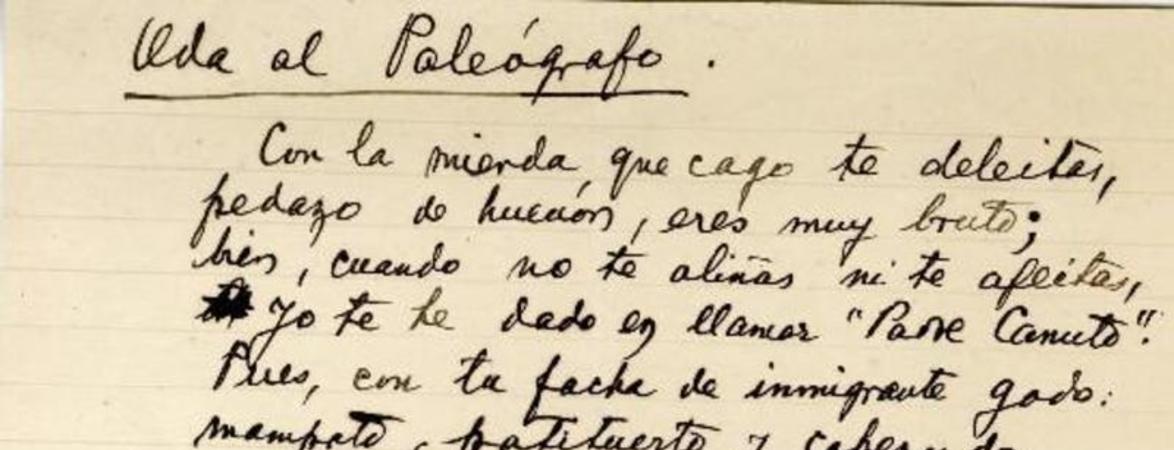 Oda al Paleógrafo.
Con la mierda, que cago te deleitas,
pedazo de hueuón, eres muy bruto;
bien, cuando no te aliñas ni te afeitas,
Yo te he dado en llamar "Padre Canuto".
Pues, con tu facha de inmigrante godo:
mampato, patituerto y cabezudo